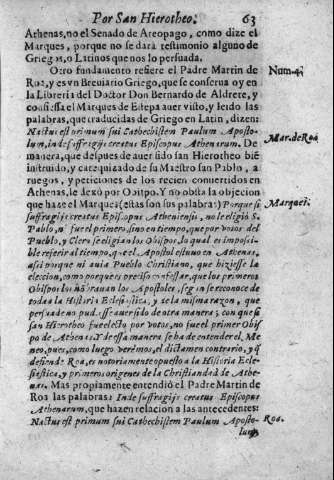 Por San Hierotheo. 63
Athenas, no el Senado de Areopago, como dize el
Marques, porque no se darà testimonio alguno de
Griegos, o Latinos que nos lo persuada.
Otro fundamento refiere el Padre Martin de Num. 4.
Roa, y es vn Breuiario Griego, que se conserua oy en
la Libreria del Doctor Don Bernardo de Aldrete, y
confiessa el Marques de Estepa auer visto, y leido las
palabras, que traducidas de Griego en Latin, dizen:
Nactus est primum sui Cathechistem Paulum Aposto-
lum, inde suffragijs creatus Episcopus Athenarum. De Mar. de Roa
manera, que despues de auer sido san Hierotheo biē
instruido, y catequizado de su Maestro san Pablo, a
ruegos, y peticiones de los recien conuertidos en
Athenas, le dexò por Obispo. Y no obsta la objecion
que haze el Marques (estas son sus palabras:) Porque si Marques.
suffragijs creatus Episcopus Atheniensis, no le eligiò S.
Pablo, ni fue el primero, sino en tiempo, que por votos del
Pueblo, y Clero se eligian los Obispos, lo qual es imposi-
ble referir al tiempo, que el Apostol estuuo en Athenas,
assi porque ni auia Pueblo Christiano, que hiziesse la
eleccion, como porque es preciso confessar, que los primeros
Obispos los nōbrauan los Apostoles, segun se reconoce de
toda la Historia Eclesiastica, y se la misma razon, que
persuade no pudiesse auer sido de otra manera; con que si
san Hierotheo fue electo por votos, no fue el primer Obis-
po de Athenas. Y de essa manera se ha de entender el Me-
neo, pues, como luego verèmos, el dictamen contrario, y q̄
defiende Roa, es notoriamente opuesto a la Historia Ecle-
siastica, y primeros origenes de la Christiandad de Athe-
nas. Mas propiamente entendiò el Padre Martin de
Roa las palabras: Inde suffragijs creatus Episcopus
Athenarum, que hazen relacion a las antecedentes:
Nactus est primum sui Cathechistem Paulum Aposto- Roa.
lum,